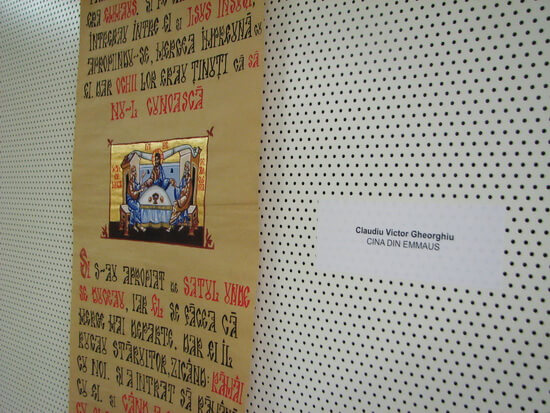 ERA EMMAUS. ȘI
ÎNTREBAU ÎNTRE EI ȘI IISUS ÎNSUȘI
APROPIINDU-SE, MERGEA ÎMPREUNĂ CU
EI. DAR OCHII LOR ERAU ȚINUȚI CA SĂ
NU-L CUNOASCĂ
ȘI S-AU APROPIAT DE SATUL UNDE
SE DUCEAU, IAR EL SE FĂCEA CĂ
MERGE MAI DEPARTE. DAR EI ÎL
RUGAU STĂRUITOR, ZICÂND: RĂMÂI
CU NOI. ȘI A INTRAT SĂ RĂMÂNĂ
CU EI. ȘI CÂND A
Claudiu Victor Gheorghiu
CINA DIN EMMAUS